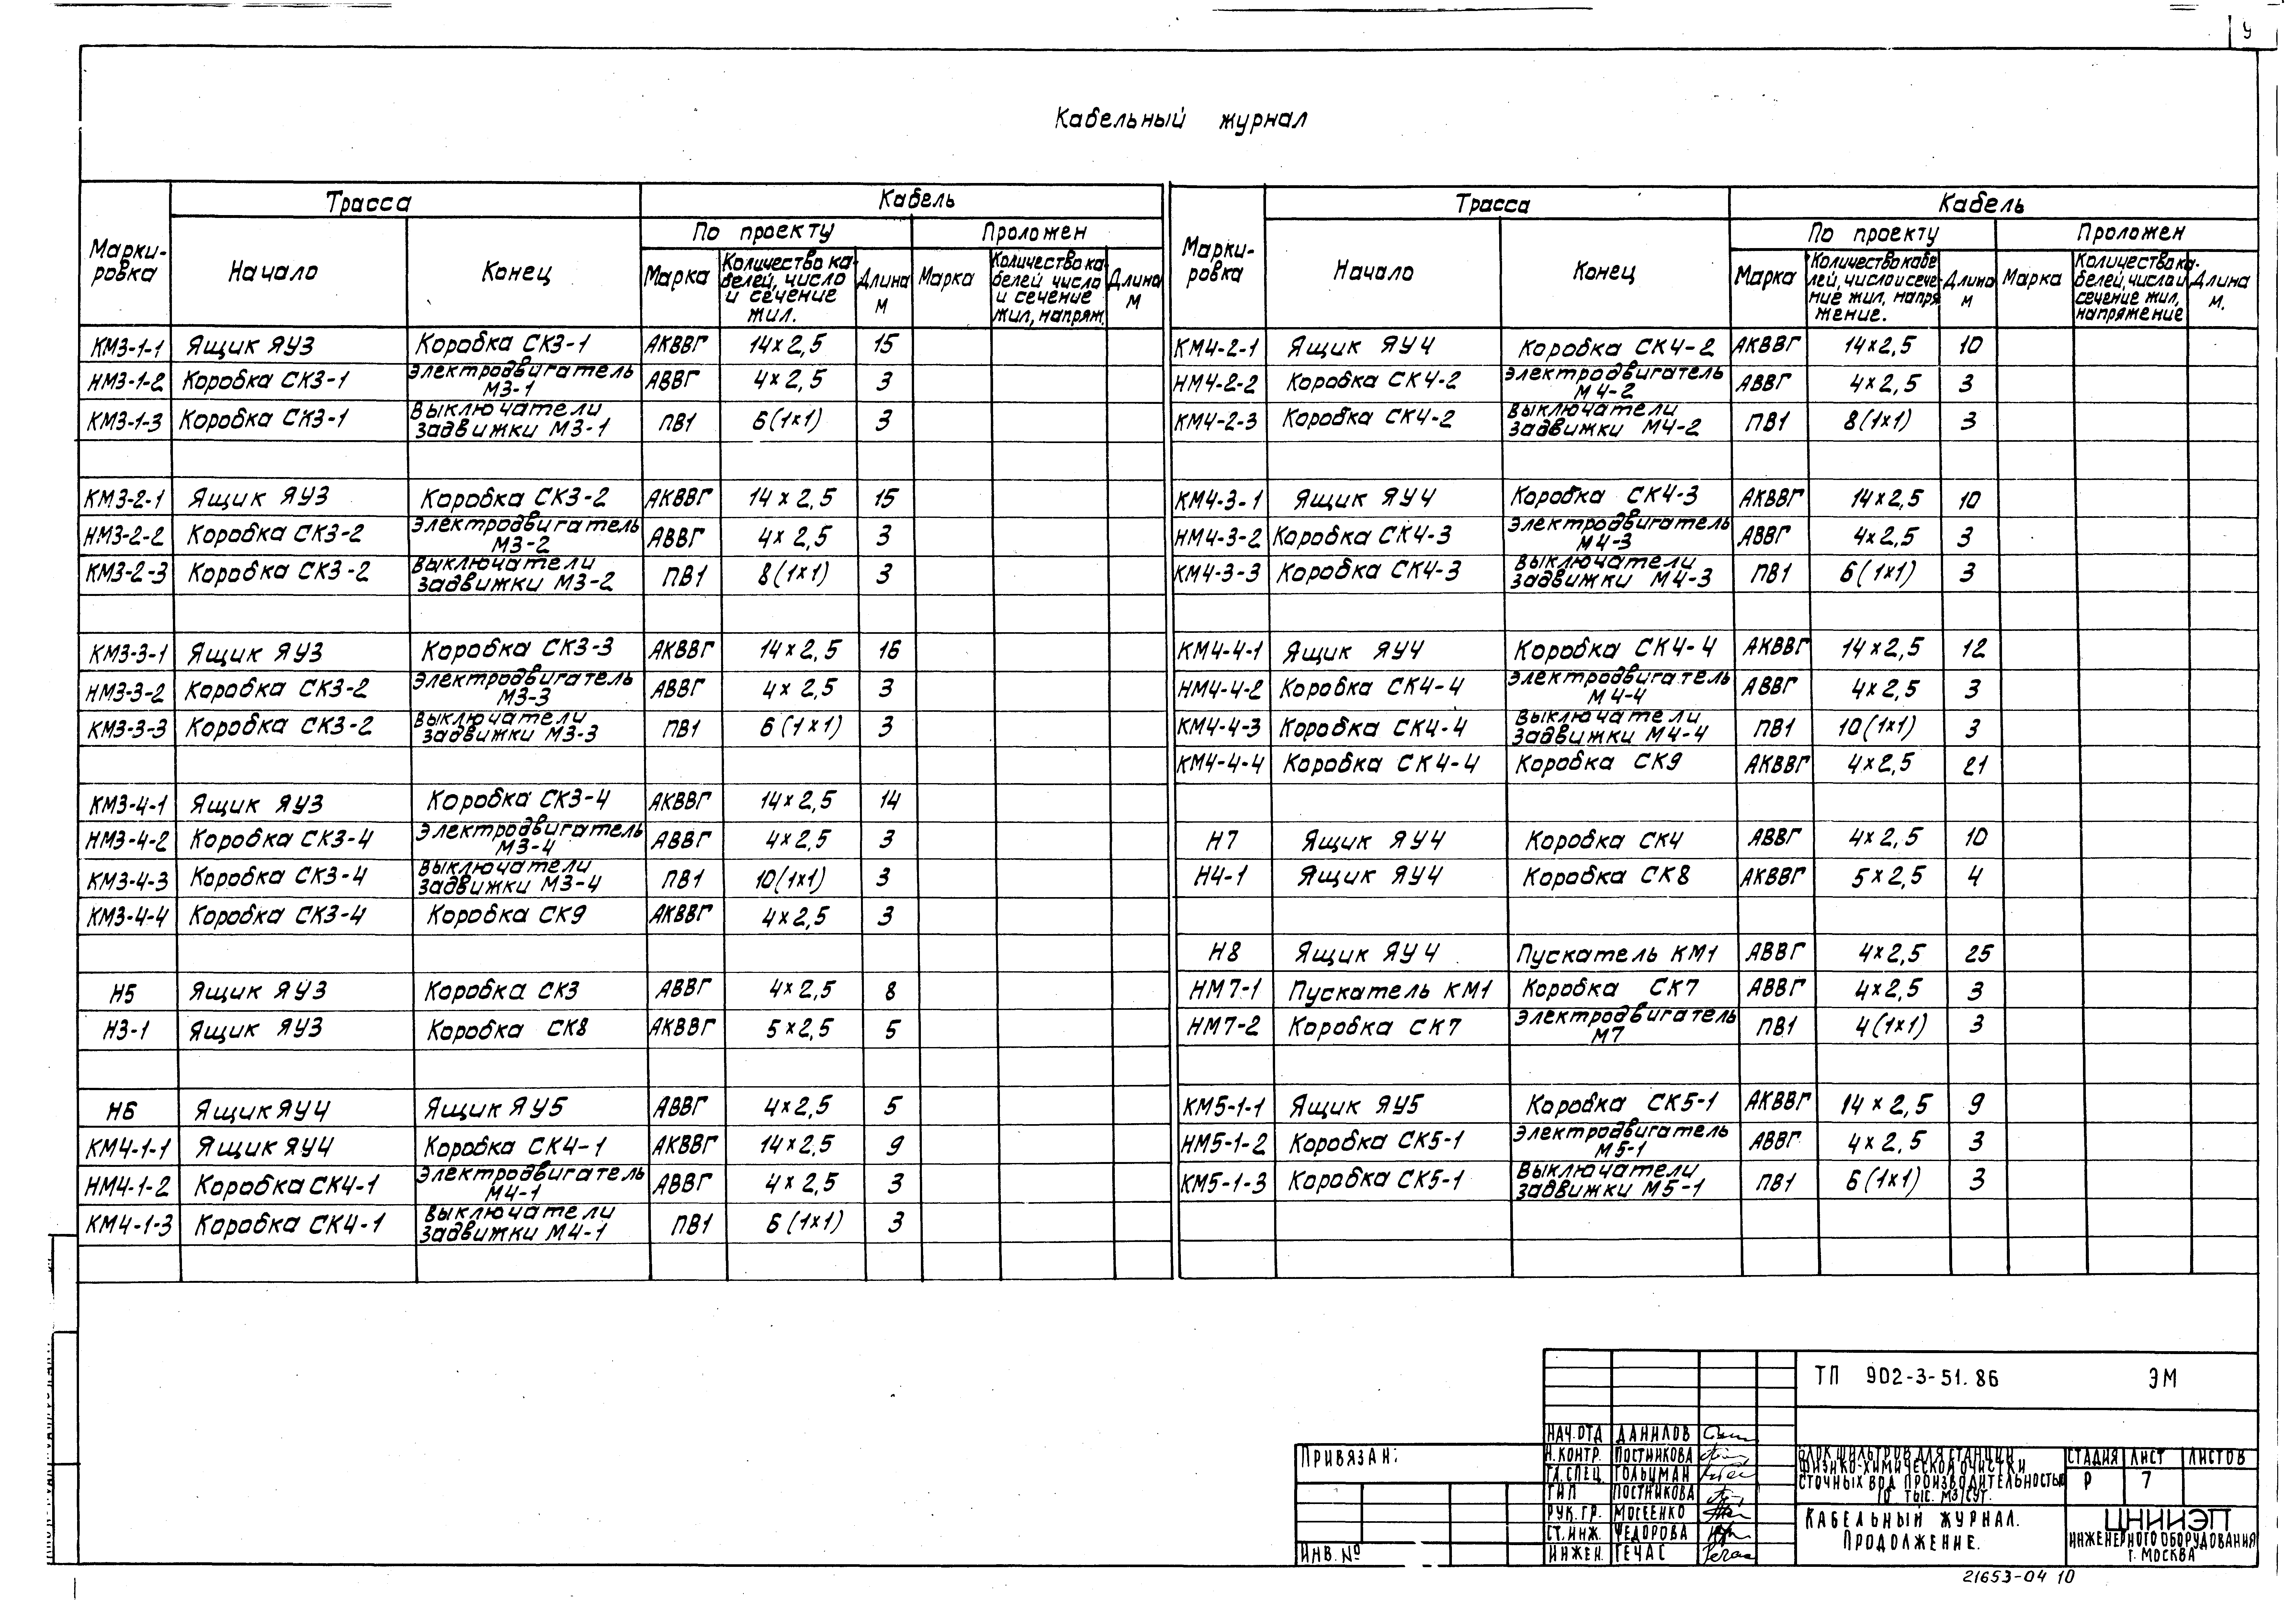 9
Кабельный журнал
Марки-
ровка
Трасса
Кабель
Начало
Конец
По проекту
Проложен
Марка
Количество ка-
белей, число
и сечение
жил.
Длина
м
Марка
Количество ка-
белей число
и сечение
жил, напряж.
Длина
м
КМ3-1-1 Ящик ЯУ3 Коробка СК3-1 АКВВГ 14×2,5 15
НМ3-1-2 Коробка СК3-1 Электродвигатель М3-1 АВВГ 4×2,5 3
КМ3-1-3 Коробка СК3-1 Выключатели задвижки М3-1 ПВ1 6(1×1) 3
КМ3-2-1 Ящик ЯУ3 Коробка СК3-2 АКВВГ 14×2,5 15
НМ3-2-2 Коробка СК3-2 Электродвигатель М3-2 АВВГ 4×2,5 3
КМ3-2-3 Коробка СК3-2 Выключатели задвижки М3-2 ПВ1 8(1×1) 3
КМ3-3-1 Ящик ЯУ3 Коробка СК3-3 АКВВГ 14×2,5 16
НМ3-3-2 Коробка СК3-2 Электродвигатель М3-3 АВВГ 4×2,5 3
КМ3-3-3 Коробка СК3-2 Выключатели задвижки М3-3 ПВ1 6(1×1) 3
КМ3-4-1 Ящик ЯУ3 Коробка СК3-4 АКВВГ 14×2,5 14
НМ3-4-2 Коробка СК3-4 Электродвигатель М3-4 АВВГ 4×2,5 3
КМ3-4-3 Коробка СК3-4 Выключатели задвижки М3-4 ПВ1 10(1×1) 3
КМ3-4-4 Коробка СК3-4 Коробка СК9 АКВВГ 4×2,5 3
Н5 Ящик ЯУ3 Коробка СК3 АВВГ 4×2,5 8
Н3-1 Ящик ЯУ3 Коробка СК8 АКВВГ 5×2,5 5
Н6 Ящик ЯУ4 Ящик ЯУ5 АВВГ 4×2,5 5
КМ4-1-1 Ящик ЯУ4 Коробка СК4-1 АКВВГ 14×2,5 9
НМ4-1-2 Коробка СК4-1 Электродвигатель М4-1 АВВГ 4×2,5 3
КМ4-1-3 Коробка СК4-1 Выключатели задвижки М4-1 ПВ1 6(1×1) 3
Марки-
ровка
Трасса
Кабель
Начало
Конец
По проекту
Проложен
Марка
Количество кабе
лей, число и сече-
ние жил, напря
жение.
Длина
м
Марка
Количество ка-
белей, число и
сечение жил,
напряжение
Длина
м.
КМ4-2-1 Ящик ЯУ4 Коробка СК4-2 АКВВГ 14×2,5 10
НМ4-2-2 Коробка СК4-2 Электродвигатель М4-2 АВВГ 4×2,5 3
КМ4-2-3 Коробка СК4-2 Выключатели задвижки М4-2 ПВ1 8(1×1) 3
КМ4-3-1 Ящик ЯУ4 Коробка СК4-3 АКВВГ 14×2,5 10
НМ4-3-2 Коробка СК4-3 Электродвигатель М4-3 АВВГ 4×2,5 3
КМ4-3-3 Коробка СК4-3 Выключатели задвижки М4-3 ПВ1 6(1×1) 3
КМ4-4-1 Ящик ЯУ4 Коробка СК4-4 АКВВГ 14×2,5 12
НМ4-4-2 Коробка СК4-4 Электродвигатель М4-4 АВВГ 4×2,5 3
КМ4-4-3 Коробка СК4-4 Выключатели задвижки М4-4 ПВ1 10(1×1) 3
КМ4-4-4 Коробка СК4-4 Коробка СК9 АКВВГ 4×2,5 21
Н7 Ящик ЯУ4 Коробка СК4 АВВГ 4×2,5 10
Н4-1 Ящик ЯУ4 Коробка СК8 АКВВГ 5×2,5 4
Н8 Ящик ЯУ4 Пускатель КМ1 АВВГ 4×2,5 25
НМ7-1 Пускатель КМ1 Коробка СК7 АВВГ 4×2,5 3
НМ7-2 Коробка СК7 Электродвигатель М7 ПВ1 4(1×1) 3
КМ5-1-1 Ящик ЯУ5 Коробка СК5-1 АКВВГ 14×2,5 9
НМ5-1-2 Коробка СК5-1 Электродвигатель М5-1 АВВГ 4×2,5 3
КМ5-1-3 Коробка СК5-1 Выключатели задвижки М5-1 ПВ1 6(1×1) 3
ТП 902-3-51.86 ЭМ
Привязан:
Инв. №
Нач.отд Данилов
Н.контр. Постникова
Гл.спец. Гольцман
ГИП Постникова
Рук.гр. Мосеенко
Ст.инж. Федорова
Инжен. Гечас
Блок фильтров для станции
физико-химической очистки
сточных вод производительностью
10 тыс. м3/сут.
Стадия Лист Листов
Р 7
Кабельный журнал.
Продолжение.
ЦНИИЭП
инженерного оборудования
г. Москва
21653-04 10